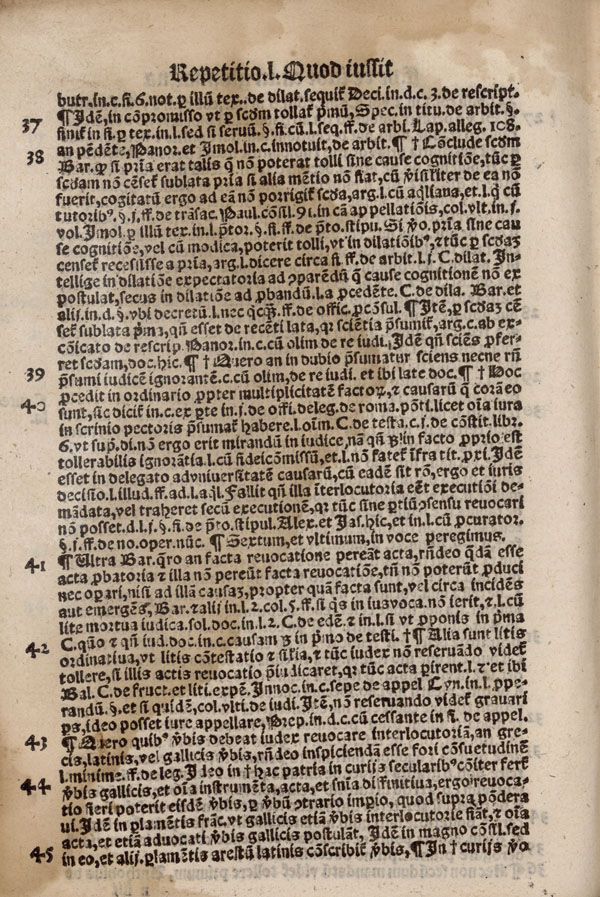 Repetitio.l.Quod iussit
butr.in.c.fi.6.not.ꝑ illũ tex..de dilat.sequiť Deci.in.d.c.3.de rescript.
37 ¶Idẽ,in cõpromisso vt ꝑ scďm tollať p̃mũ,Spec.in titu.de arbit.§.
finiť in fi.ꝑ tex.in.l.sed si seruũ.§.fi.cũ.l.seq.ff.de arbi.Lap.alleg.108.
38 an pẽdẽte,Panor.et Imol.in.c.innotuit,de arbit.¶ † Cõclude scďm
Bar.ꝙ si pr̃ia erat talis q̃ nõ poterat tolli sine cause cognitiõe,tũc ꝑ
scďam nõ cẽseť sublata pr̃ia si alia mẽtio nõ fiat,cũ ṽisiliter de ea nõ
fuerit,cogitatũ ergo ad eã nõ porrigiť scďa,arg.l.cũ aq̃liana,et.l.q̃ cũ
tutoribꝰ.§.j.ff.de trãsac.Paul.cõsil.91.in cã appellatiõis,col.vlt.in.f.
vol.Imol.ꝑ illũ tex.in.l.p̃tor.§.fi.ff.de p̃to.stipu.Si ṽo.pr̃ia sine cau
se cognitiõe,vel cũ modica,poterit tolli,vt in dilatiõibꝰ,⁊ tũc ꝑ scďaȝ
censeť recessisse a pr̃ia,arg.l.dicere circa fi ff.de arbit.l.j.C.dilat.In-
tellige in dilatiõe expectatoria ad ↄparẽdũ q̃ cause cognitionẽ nõ ex
postulat,secus in dilatiõe ad ꝓbandũ.l.a ꝓcedẽte.C.de dila.Bar.et
alij.in.d.§.vbi decretũ.l.nec qcq̃ȝ.ff.de offic.ꝓcõsul.¶Itẽ,ꝑ scďaȝ cẽ
seť sublata p̃ma,qñ esset de recẽti lata,qꝛ sciẽtia p̃sumiť,arg.c.ab ex-
cõicato de rescrip.Panor.in.c.cũ olim de re iudi.Idẽ qñ sciẽs ꝓfer-
39 ret scďam,doc.hic.¶ † Quero an in dubio p̃sumatur sciens necne rñ
p̃sumi iudicẽ ignorantẽ.c.cũ olim,de re iudi.et ibi late doc.¶ † Hoc
40 ꝓcedit in ordinario ꝓpter multiplicitatẽ factoꝝ,⁊ causarũ q̃ corã eo
sunt,sic diciť in.c.ex ꝑte in.j.de offi.deleg.de roma.põti.licet oĩa iura
in scrinio pectoris p̃sumať habere.l.oĩm.C.de testa.c.j.de cõstit.libr.
6.vt sup̃.di.nõ ergo erit mirandũ in iudice,nã qñ ꝗs in facto ꝓprio est
tollerabilis ignorãtia.l.cũ fideicõmissũ,et.l.nõ fateť ĩfra tit.ꝓxi.Idẽ
esset in delegato advniuersitatẽ causarũ,cũ eadẽ sit rõ,ergo et iuris
decisio.l.illud.ff.ad.l.aq̃l.Fallit qñ illa ĩterlocutoria eẽt executiõi de-
mãdata,vel traheret secũ executionẽ,qꝛ tũc sine ꝑtiũ ↄsensu reuocari
nõ posset.d.l.j.§.fi.de p̃to.stipul.Alex.et Jas.hic,et in.l.cũ ꝓcurator.
§.j.ff.de no.oper.nũc.¶Sextum,et vltimum,in voce peregimus.
41 ¶Ultra Bar.q̃ro an facta reuocatione pereãt acta,rñdeo q̃dã esse
acta ꝓbatoria ⁊ illa nõ pereũt facta reuocatiõe,tñ nõ poterũt ꝓduci
nec oꝑari,nisi ad illã causaȝ,propter quã facta sunt,vel circa incidẽs
aut emergẽs,Bar.⁊ alij in.l.2.col.5.ff.si q̃s in ius voca.nõ ierit,⁊.l.cũ
lite mortua iudica.sol.doc.in.l.2.C.de edẽ.⁊ in.l.si vt ꝓponis in p̃ma
42 C.quõ ⁊ qñ iud.doc.in.c.causam ꝗ in p̃mo de testi.†¶Alia sunt litis
ordinatiua,vt litis cõtestatio ⁊ silia,⁊ tũc iudex nõ reseruãdo videť
tollere,si illis actis reuocatio p̃iudicaret,qꝛ tũc acta ꝑirent.l.⁊ et ibi
Bal.C.de fruct.et liti.expẽ.Innoc.in.c.sepe de appel Cyn.in.l.ꝓpe-
randũ.§.et si quidẽ,col.vlti.de iudi.Itẽ,nõ reseruando videť grauari
ps,ideo posset iure appellare,Prep.in.d.c.cũ cessante in fi.de appel.
43 ¶Quero quibꝰ ṽbis debeat iudex reuocare interlocutoriã,an gre-
cis,latinis,vel gallicis ṽbis,rñdeo inspiciendã esse fori cõsuetudinẽ
44 l.minime.ff.de leg.Ideo in † hac patria in curijs secularibꝰ cõiter ferť
ṽbis gallicis,et oĩa instrumẽta,acta,et snĩa diffinitiua,ergo reuoca-
tio fieri poterit eisdẽ ṽbis,ꝑ ṽbũ ↄtrario imꝑio,quod supra põdera
ui.Idẽ in ꝑlamẽtis frãc.vt gallicis etiã ṽbis interlocutorie fiãt,⁊ oĩa
acta,et etiã aduocati ṽbis gallicis postulãt,Idẽm in magno cõsil.sed
45 in eo,et alij.ꝑlamẽtis arestũ latinis cõscribiť ṽbis,¶In † curijs ṽo